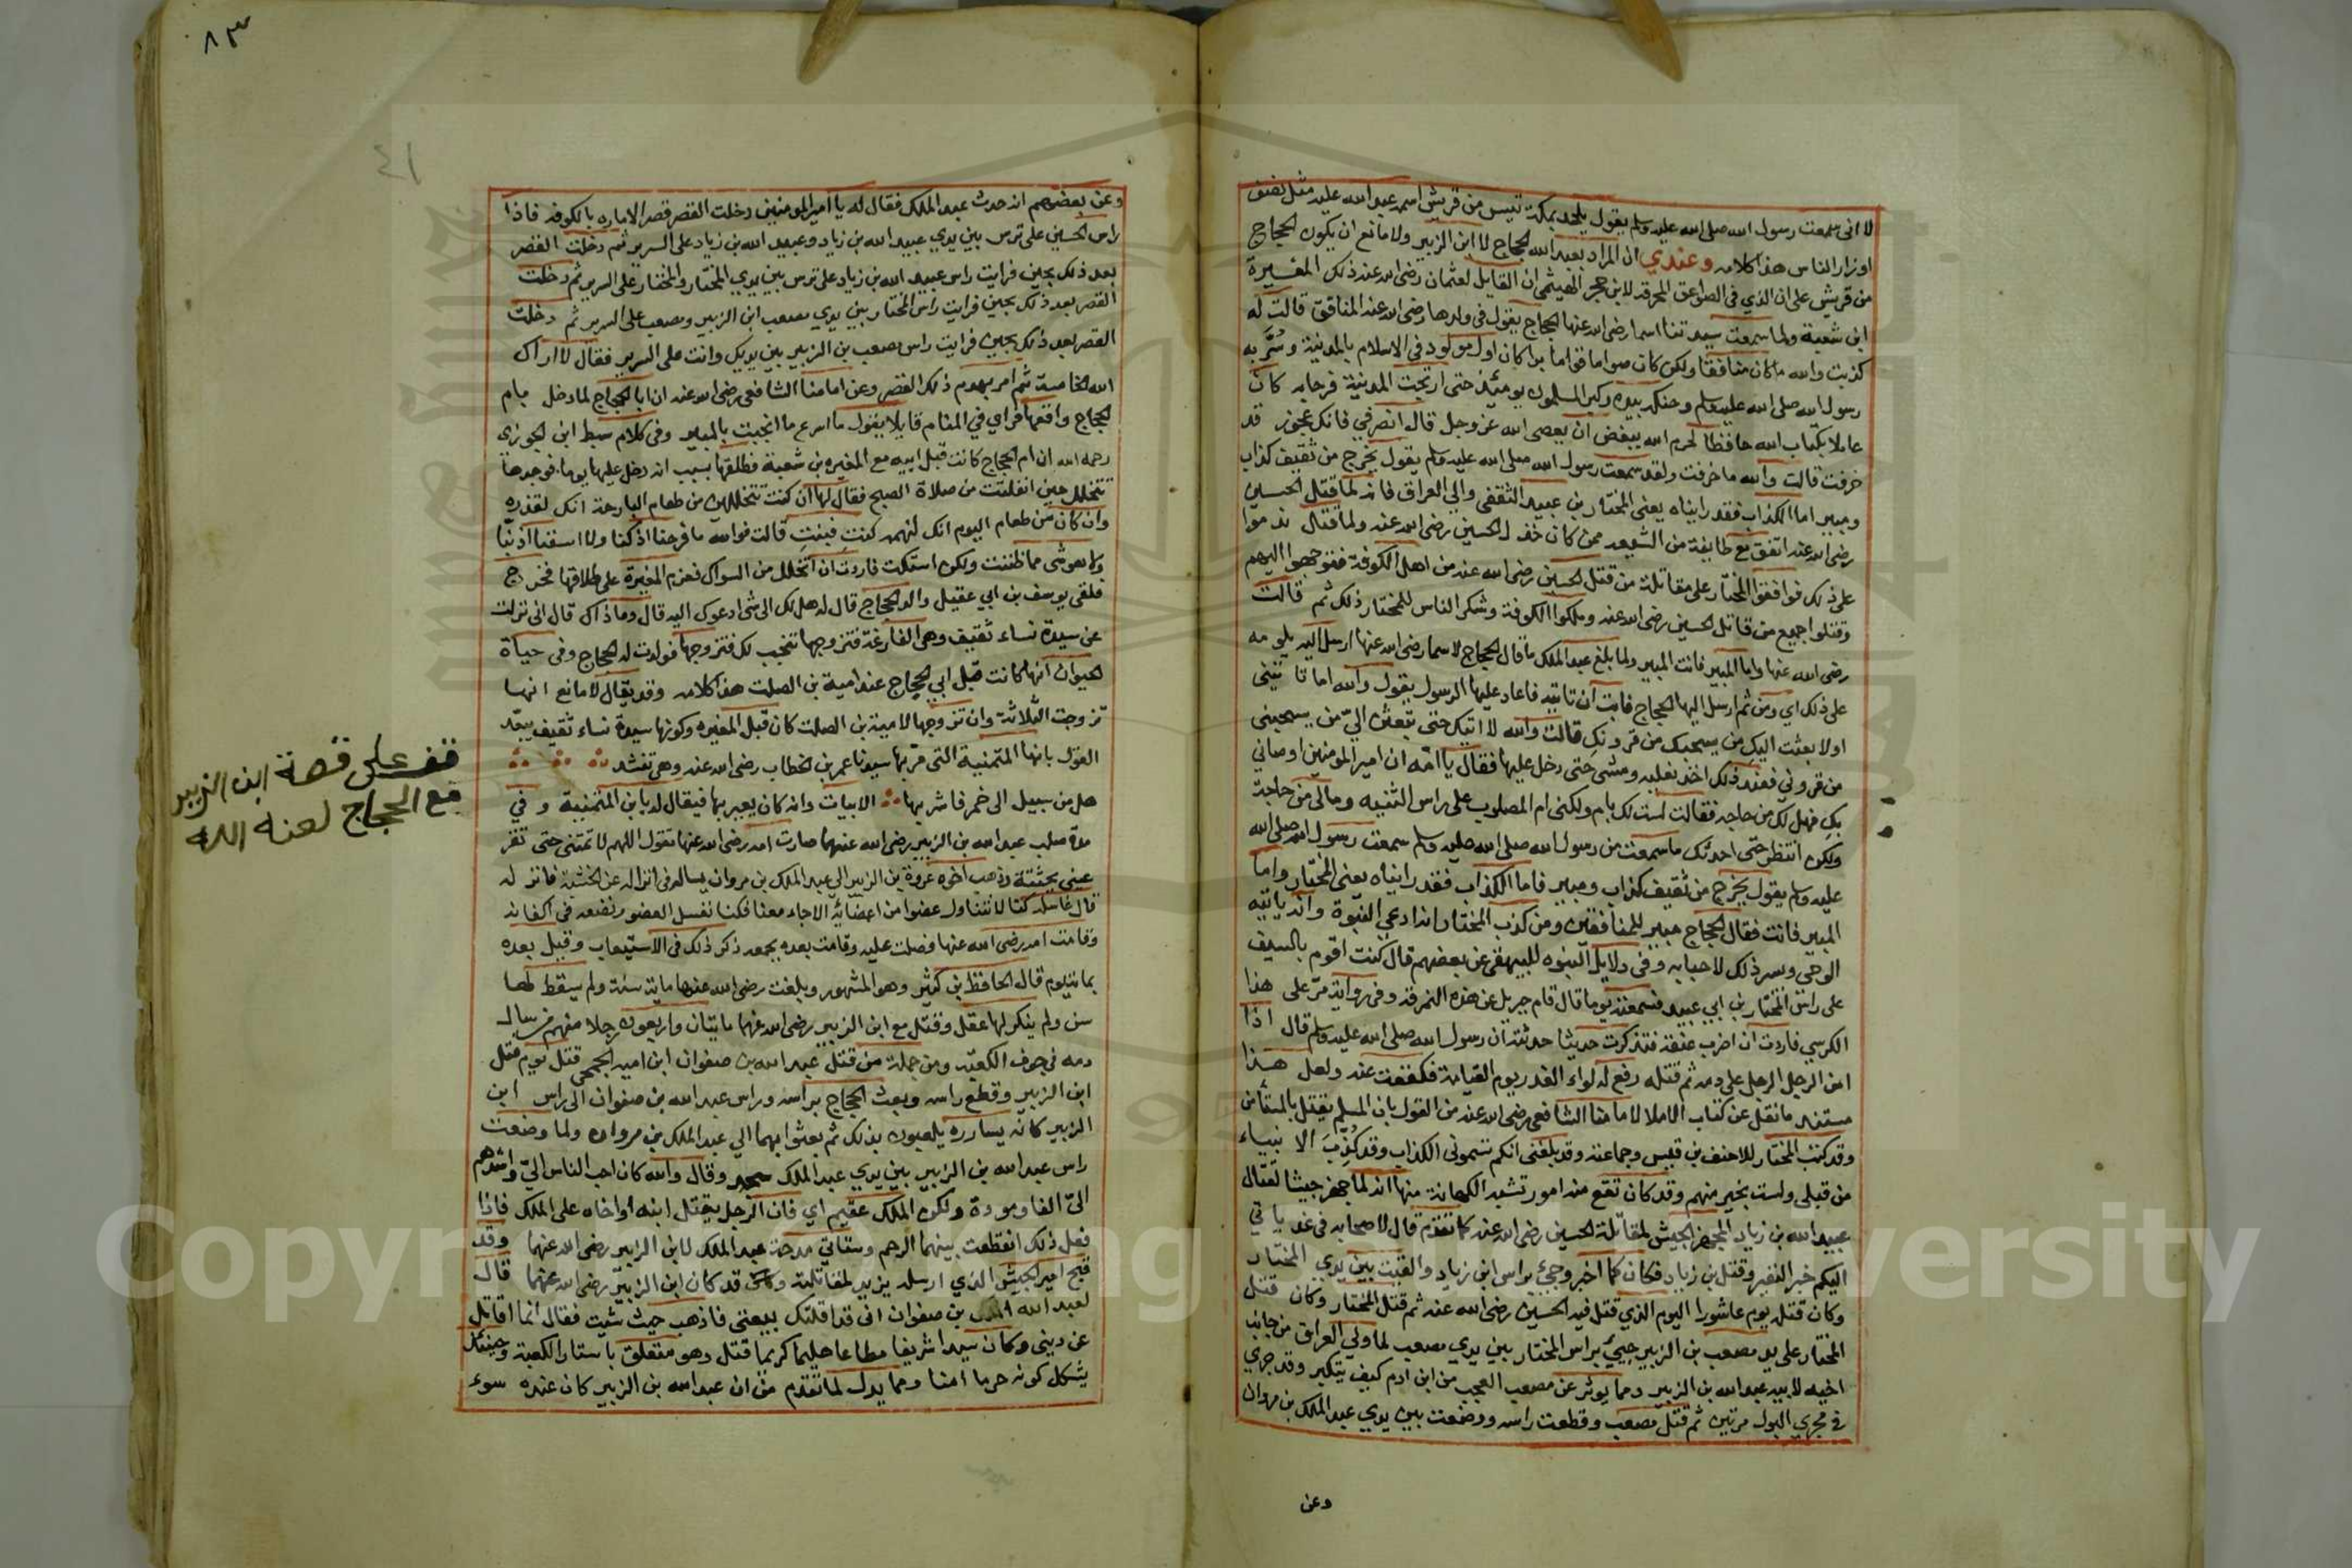 لا انى سمعت رسول الله صلى الله عليه وسلم يقول يلحد بمكة تيس من قريش اسمه عبد الله عليه مثل نصف
اوزار الناس هذا كلامه وعندي ان المراد بعبد الله الحجاج لا ابن الزبير ولا مانع ان يكون الحجاج
من قريش على ان الذي في الصواعق المحرقه لابن حجر الهيثمى ان القايل لعثمان رضى الله عنه ذلك المغيرة
ابن شعبة ولما سمعت سيدتنا اسما رضى الله عنها الحجاج يقول في ولدها رضى الله عنه المنافق قالت له
كذبت والله ما كان منافقا ولكن كان صواما قواما برا كان اول مولود في الاسلام بالمدينة وسُرَّ به
رسول الله صلى الله عليه وسلم وحنكه بيده وكبر المسلمون يومئذ حتى ارتجت المدينة فرحا به كان
عاملا بكتاب الله حافظا لحرم الله يبغض ان يعصى الله عز وجل قال انصرفي فانك عجوز قد
خرفت قالت والله ما خرفت ولقد سمعت رسول الله صلى الله عليه وسلم يقول يخرج من ثقيف كذاب
ومبير اما الكذاب فقد رايناه يعنى المختار بن عبيد الثقفى والي العراق فانه لما قتل الحسين
رضى الله عنه اتفق مع طايفة من الشيعه ممن كان خذل الحسين رضى الله عنه ولما قتل ندموا
على ذلك فوافقوا المختار على مقاتلة من قتل الحسين رضى الله عنه من اهل الكوفة فتوجهوا اليهم
وقتلوا جميع من قاتل الحسين رضى الله عنه وملكوا الكوفة وشكر الناس للمختار ذلك ثم قالت
رضى الله عنها واما المبير فانت المبير ولما بلغ عبد الملك ما قال الحجاج لاسما رضى الله عنها ارسل اليه يلومه
على ذلك اي ومن ثم ارسل اليها الحجاج فابت ان تاتيه فاعاد عليها الرسول يقول والله اما تاتينى
اولا بعثت اليك من يسحبك من قرونك قالت والله لا اتيك حتى تبعث الىّ من يسحبنى
من قرونى فعند ذلك اخذ نعليه ومشى حتى دخل عليها فقال يا امّه ان امير المومنين اوصانى
بك فهل لك من حاجه فقالت لست لك بام ولكنى ام المصلوب على راس الثنيه ومالى من حاجة
ولكن انتظر حتى احدثك ما سمعت من رسول الله صلى الله عليه وسلم سمعت رسول الله صلى الله
عليه وسلم يقول يخرج من ثقيف كذاب ومبير فاما الكذاب فقد رايناه يعنى المختار واما
المبير فانت فقال الحجاج مبير للمنافقين ومن كذب المختار انه ادعى النبوة وانه ياتيه
الوحى ويسر ذلك لاحبابه وفى دلايل النبوه للبيهقى عن بعضهم قال كنت اقوم بالسيف
على راس المختار بن ابي عبيد فسمعته يوما قال قام جبريل عن هذه النمرقه وفى رواية مرّ على هذا
الكرسي فاردت ان اضرب عنقه فتذكرت حديثا حدثته ان رسول الله صلى الله عليه وسلم قال اذا
امن الرجل الرجل على دمه ثم قتله رفع له لواء الغدر يوم القيامة فكففت عنه ولعل هذا
مستند ما نقل عن كتاب الاملا لامامنا الشافعى رضى الله عنه من القول بان المسلم يقتل بالمستأمن
وقد كتب المختار للاحنف بن قيس وجماعته وقد بلغنى انكم تسمونى الكذاب وقد كُذِّبَ الانبياء
من قبلى ولست بخير منهم وقد كان تقع منه امور تشبه الكهانة منها انه لما جهز جيشا لقتال
عبيد الله بن زياد المجهز الجيش لمقاتلة الحسين رضى الله عنه كما تقدم قال لاصحابه فى غد ياتي
اليكم خبر النصر وقتل بن زياد فكان كما اخبر وجيء براس ابن زياد والقيت بين يدي المختار
وكان قتله يوم عاشورا اليوم الذي قتل فيه الحسين رضى الله عنه ثم قتل المختار وكان قتل
المختار على يد مصعب بن الزبير جيئ براس المختار بين يدي مصعب لما ولي العراق من جانب
اخيه لابيه عبد الله بن الزبير ومما يوثر عن مصعب العجب من ابن ادم كيف يتكبر وقد جري
فى مجري البول مرتين ثم قتل مصعب وقطعت راسه ووضعت بين يدي عبد الملك بن مروان
وعن
٨٣
٤١
وعن بعضهم انه حدث عبد الملك فقال له يا امير المومنين دخلت القصر قصر الاماره بالكوفه فاذا
راس الحسين على ترس بين يدي عبيد الله بن زياد وعبيد الله بن زياد على السرير ثم دخلت القصر
بعد ذلك بحين فرايت راس عبيد الله بن زياد على ترس بين يدي المختار والمختار على السرير ثم دخلت
القصر بعد ذلك بحين فرايت راس المختار بين يدي مصعب ابن الزبير ومصعب على السرير ثم دخلت
القصر بعد ذلك بحين فرايت راس مصعب بن الزبير بين يديك وانت على السرير فقال لا اراك
الله الخامسة ثم امر بهدم ذلك القصر وعن امامنا الشافعى رضى الله عنه ان ابا الحجاج لما دخل بام
الحجاج واقعها فراي في المنام قايلا يقول ما اسرع ما انجبت بالمبير وفى كلام سبط ابن الجوزى
رحمه الله ان ام الحجاج كانت قبل ابيه مع المغيره بن شعبة فطلقها بسبب انه دخل عليها يوما فوجدها
تتخلل حين انفلتت من صلاة الصبح فقال لها ان كنت تتخللين من طعام البارحة انك لقذره
وان كان من طعام اليوم انك لنهمه كنتِ فبنتِ قالت فوالله ما فرحنا اذ كنا ولا اسفنا اذ بنّا
ولا هو شى مما ظننت ولكن استكت فاردت ان اتخلل من السواك فعزم المغيرة على طلاقها فخرج
فلقى يوسف بن ابي عقيل والد الحجاج قال له هل لك الى شى ادعوك اليه قال وما ذاك قال انى نزلت
عن سيدة نساء ثقيف وهى الفارغة فتزوجها تنجب لك فتزوجها فولدت له الحجاج وفى حياة
الحيوان انها كانت قبل ابي الحجاج عند امية بن الصلت هذا كلامه وقد يقال لا مانع انها
تزوجت الثلاثة وان تزوجها لامية بن الصلت كان قبل المغيره وكونها سيدة نساء ثقيف يبعد
القول بانها المتمنية التى مر بها سيدنا عمر بن الخطاب رضى الله عنه وهى تنشد
هل من سبيل الى خمر فاشربها الابيات وانه كان يعير بها فيقال له يا بن المتمنية وفي
مدة صلب عبد الله بن الزبير رضى الله عنهما صارت امه رضى الله عنها تقول اللهم لا تمتنى حتى تقر
عينى بجثته وذهب اخوه عروة بن الزبير الي عبد الملك بن مروان يساله في انزاله عن الخشبة فانزله
قال غاسله كنا لا نتناول عضوا من اعضائه الا جاء معنا فكنا نغسل العضو ونضعه في اكفانه
وقامت امه رضى الله عنها فصلت عليه وماتت بعده بجمعه ذكر ذلك فى الاستيعاب وقيل بعده
بماية يوم قال الحافظ بن كثير وهو المشهور وبلغت رضى الله عنها ماية سنة ولم يسقط لها
سن ولم ينكر لها عقل وقتل مع ابن الزبير رضى الله عنهما مايتان واربعون رجلا منهم من سال
دمه في جوف الكعبة ومن جملة من قتل عبد الله بن صفوان ابن امية الجمحى قتل يوم قتل
ابن الزبير وقطع راسه وبعث الحجاج براسه وراس عبد الله بن صفوان الى راس ابن
الزبير كانه يسارره يلعبون بذلك ثم بعثوا بهما الي عبد الملك بن مروان ولما وضعت
راس عبد الله بن الزبير بين يدي عبد الملك سجد وقال والله كان احب الناس الىّ واشدهم
الىّ الفا ومودة ولكن الملك عقيم اي فان الرجل يقتل ابنه او اخاه على الملك فاذا
فعل ذلك انقطعت بينهما الرحم وستاتي مدحة عبد الملك لابن الزبير رضى الله عنهما وقد
قبح امير الجيش الذي ارسله يزيد لمقاتلته قد كان ابن الزبير رضى الله عنهما قال
لعبد الله بن صفوان انى قد اقلتك بيعتى فاذهب حيث شيت فقال انما اقاتل
عن دينى وكان سيدا شريفا مطاعا حليما كريما قتل وهو متعلق باستار الكعبة وحينئذ
يشكل كونه حرما امنا ومما يدل لما تقدم من ان عبد الله بن الزبير كان عنده سوء
قف على قصة ابن الزبير
مع الحجاج لعنه الله